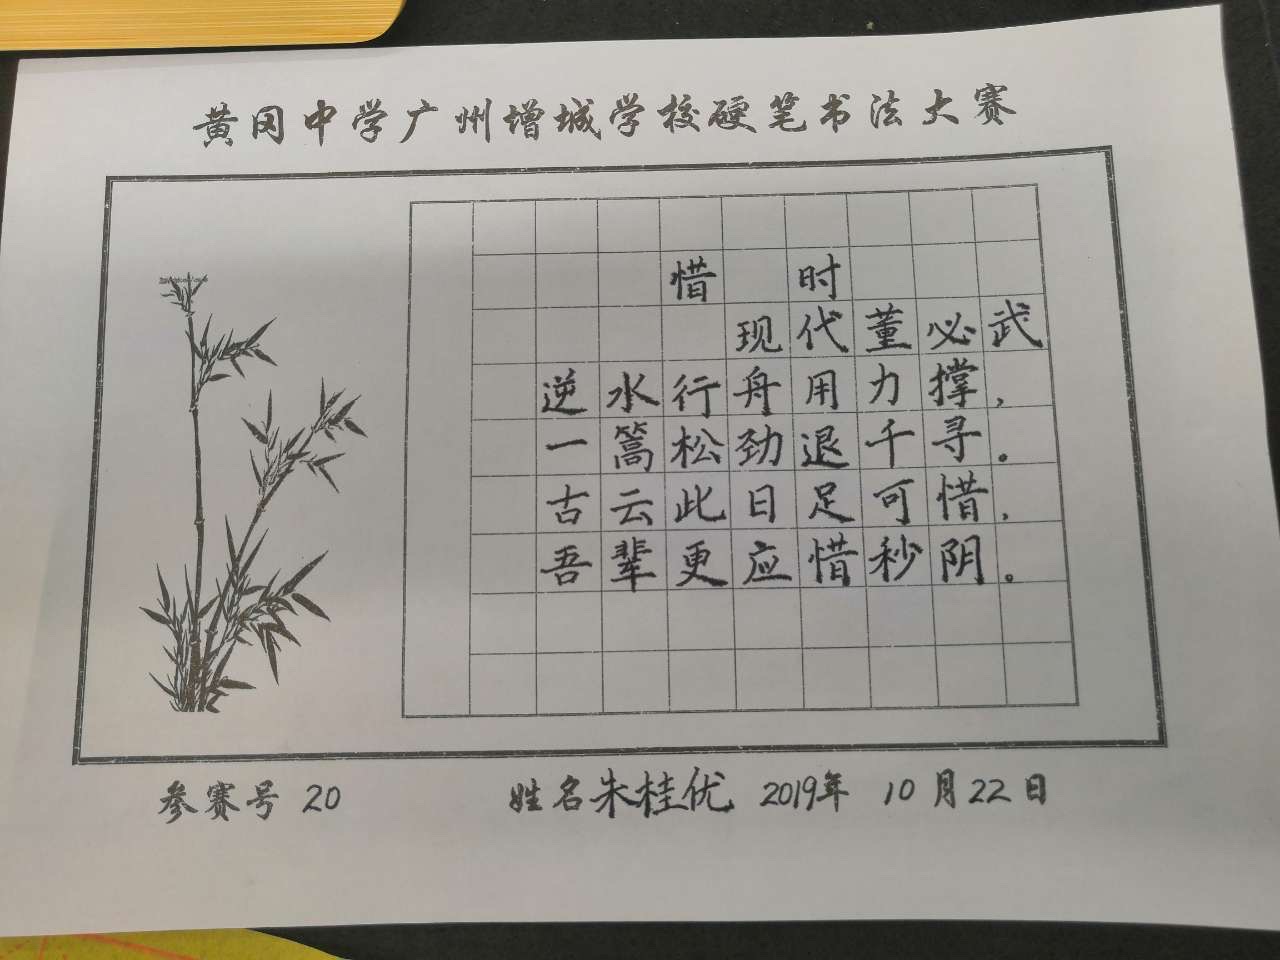 黄冈中学广州增城学校硬笔书法大赛
惜时
现代董必武
逆水行舟用力撑,
一篙松劲退千寻。
古云此日足可惜,
吾辈更应惜秒阴。
参赛号 20 姓名朱桂优 2019年 10月22日